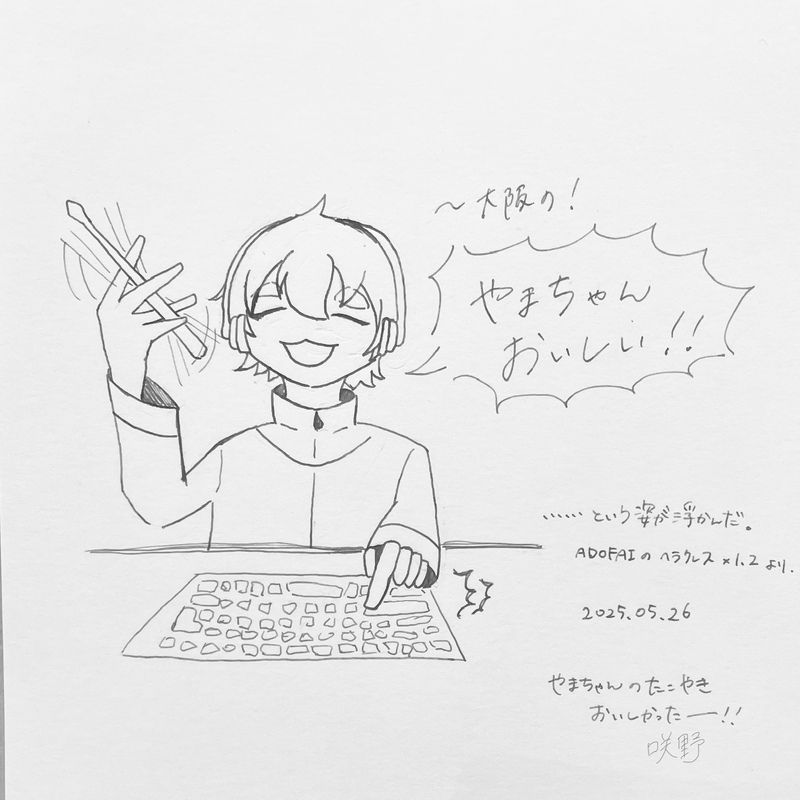 ～大阪の！
やまちゃん
おいしい!!
……という姿が浮かんだ。
ADOFAIのヘラクレス×1.2より.
2025.05.26
やまちゃんのたこやき
おいしかったー!!
咲野